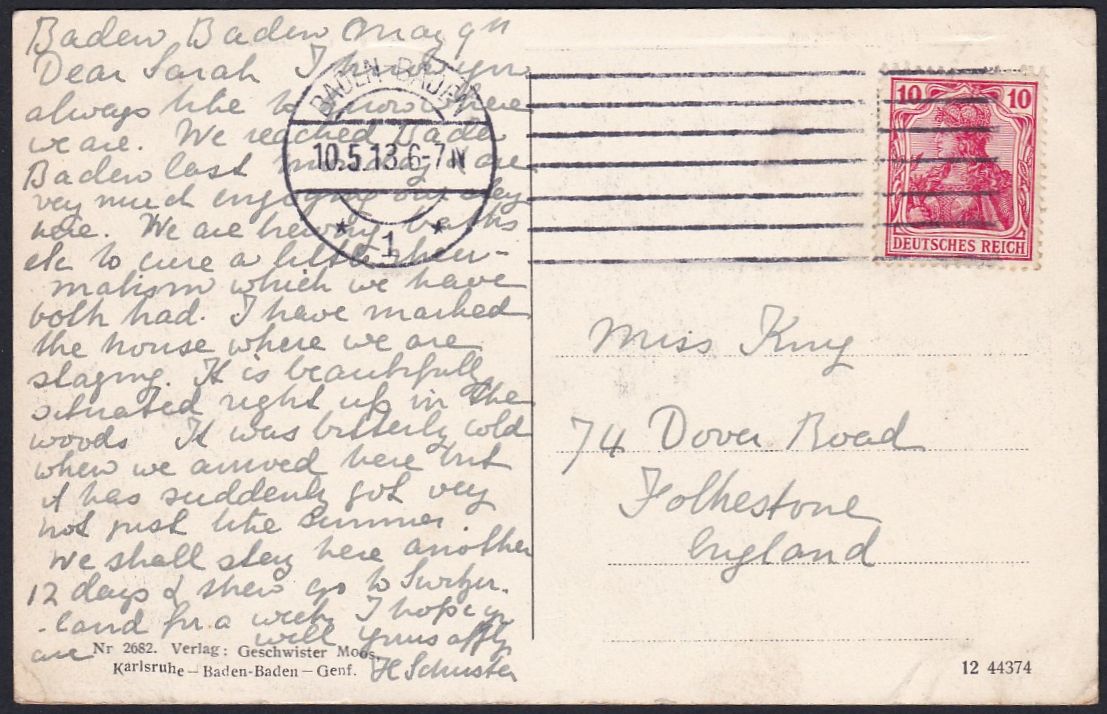 Baden Baden May 9th
Dear Sarah I know you
always like to know where
we are. We reached Baden
Baden last & are
very much enjoying our stay
here. We are having baths
etc to cure a little rheu-
matism which we have
both had. I have marked
the house where we are
staying. It is beautifully
situated right up in the
woods It was bitterly cold
when we arrived here but
it has suddenly got very
hot just like summer.
We shall stay here another
12 days & then go to Switzer.
-land for a week I hope you
are well yours affly
H Schuster
Nr 2682. Verlag: Geschwister Moos,
Karlsruhe — Baden-Baden — Genf.
BADEN-BADEN
10.5.13.6-7 N
* 1 *
10 10
DEUTSCHES REICH
Miss King
74 Dover Road
Folkestone
England
12 44374